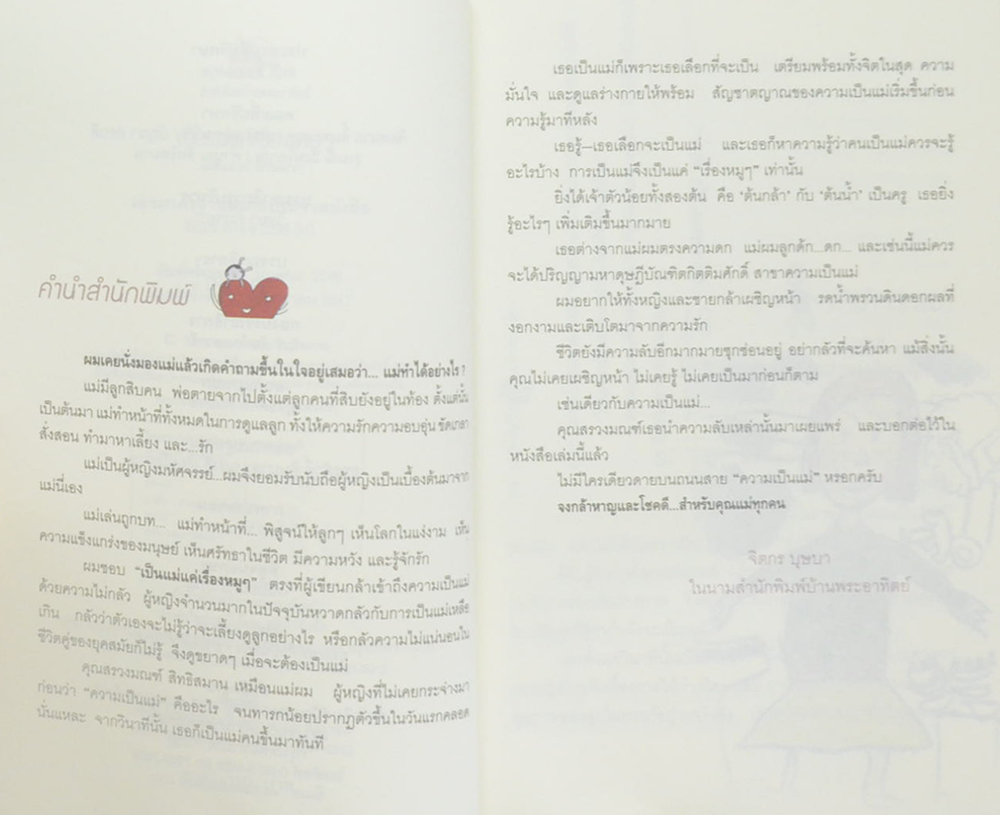 คำนำสำนักพิมพ์
ผมเคยนั่งมองแม่แล้วเกิดคำถามขึ้นในใจอยู่เสมอว่า... แม่ทำได้อย่างไร ?
แม่มีลูกสิบคน พ่อตายจากไปตั้งแต่ลูกคนที่สิบยังอยู่ในท้อง ตั้งแต่นั้น
เป็นต้นมา แม่ทำหน้าที่ทั้งหมดในการดูแลลูก ทั้งให้ความรักความอบอุ่น ขัดเกลา
สั่งสอน ทำมาหาเลี้ยง และ...รัก
แม่เป็นผู้หญิงมหัศจรรย์...ผมจึงยอมรับนับถือผู้หญิงเป็นเบื้องต้นมาจาก
แม่นี่เอง
แม่เล่นถูกบท... แม่ทำหน้าที่... พิสูจน์ให้ลูกๆ เห็นโลกในแง่งาม เห็น
ความแข็งแกร่งของมนุษย์ เห็นศรัทธาในชีวิต มีความหวัง และรู้จักรัก
ผมชอบ "เป็นแม่แค่เรื่องหมูๆ" ตรงที่ผู้เขียนกล้าเข้าถึงความเป็นแม่
ด้วยความไม่กลัว ผู้หญิงจำนวนมากในปัจจุบันหวาดกลัวกับการเป็นแม่เหลือ
เกิน กลัวว่าตัวเองจะไม่รู้ว่าจะเลี้ยงดูลูกอย่างไร หรือกลัวความไม่แน่นอนใน
ชีวิตคู่ของยุคสมัยก็ไม่รู้ จึงดูขยาดๆ เมื่อจะต้องเป็นแม่
คุณสรวงมณฑ์ สิทธิสมาน เหมือนแม่ผม ผู้หญิงที่ไม่เคยกระจ่างมา
ก่อนว่า "ความเป็นแม่" คืออะไร จนทารกน้อยปรากฏตัวขึ้นในวันแรกคลอด
นั่นแหละ จากวินาทีนั้น เธอก็เป็นแม่คนขึ้นมาทันที
เธอเป็นแม่ก็เพราะเธอเลือกที่จะเป็น เตรียมพร้อมทั้งจิตในสุด ความ
มั่นใจ และดูแลร่างกายให้พร้อม สัญชาตญาณของความเป็นแม่เริ่มขึ้นก่อน
ความรู้มาทีหลัง
เธอรู้—เธอเลือกจะเป็นแม่ และเธอก็หาความรู้ว่าคนเป็นแม่ควรจะรู้
อะไรบ้าง การเป็นแม่จึงเป็นแค่ "เรื่องหมูๆ" เท่านั้น
ยิ่งได้เจ้าตัวน้อยทั้งสองต้น คือ 'ต้นกล้า' กับ 'ต้นน้ำ' เป็นครู เธอยิ่ง
รู้อะไรๆ เพิ่มเติมขึ้นมากมาย
เธอต่างจากแม่ผมตรงความดก แม่ผมลูกดัก...ดก... และเช่นนี้แม่ควร
จะได้ปริญญามหาดุษฎีบัณฑิตกิตติมศักดิ์ สาขาความเป็นแม่
ผมอยากให้ทั้งหญิงและชายกล้าเผชิญหน้า รดน้ำพรวนดินดอกผลที่
งอกงามและเติบโตมาจากความรัก
ชีวิตยังมีความลับอีกมากมายซุกซ่อนอยู่ อย่ากลัวที่จะค้นหา แม้สิ่งนั้น
คุณไม่เคยเผชิญหน้า ไม่เคยรู้ ไม่เคยเป็นมาก่อนก็ตาม
เช่นเดียวกับความเป็นแม่...
คุณสรวงมณฑ์เธอนำความลับเหล่านั้นมาเผยแพร่ และบอกต่อไว้ใน
หนังสือเล่มนี้แล้ว
ไม่มีใครเดียวดายบนถนนสาย "ความเป็นแม่" หรอกครับ
จงกล้าหาญและโชคดี...สำหรับคุณแม่ทุกคน
จิตกร บุษบา
ในนามสำนักพิมพ์บ้านพระอาทิตย์